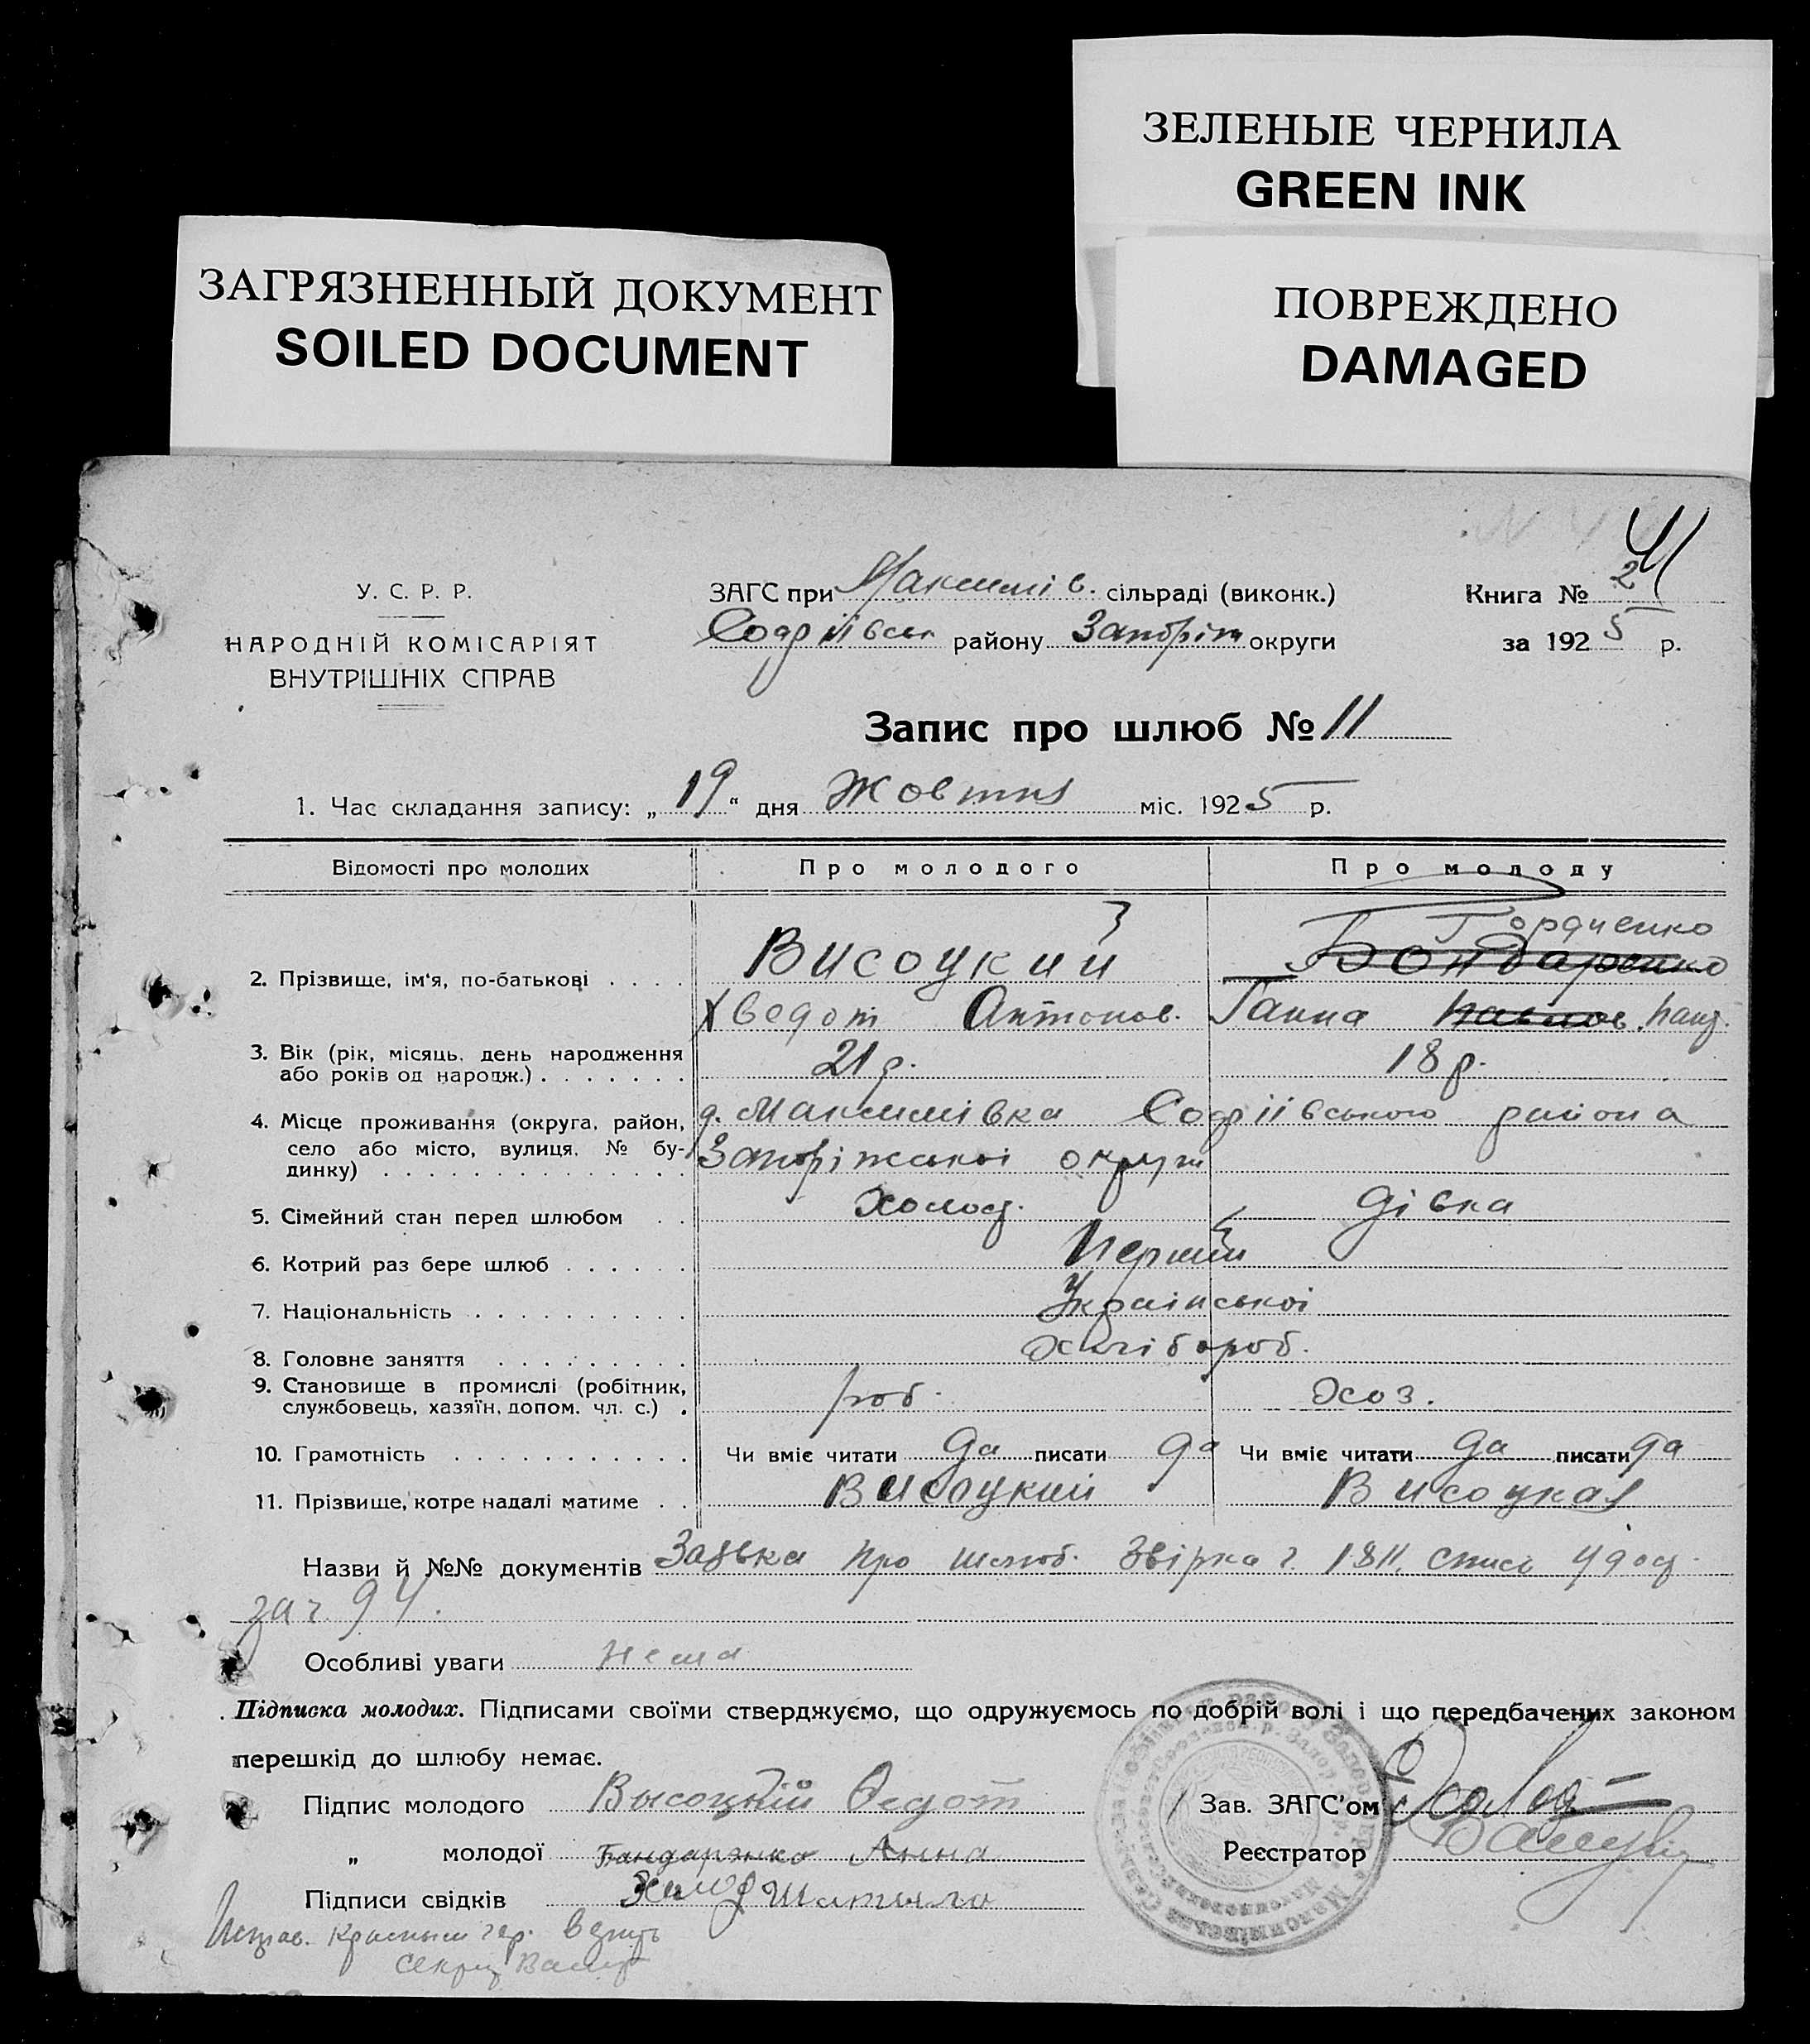 ЗЕЛЕНЫЕ ЧЕРНИЛА
GREEN INK
ЗАГРЯЗНЕННЫЙ ДОКУМЕНТ
SOILED DOCUMENT
ПОВРЕЖДЕНО
DAMAGED
У. С. Р. Р.
НАРОДНІЙ КОМІСАРІЯТ
ВНУТРІШНІХ СПРАВ
ЗАГС при Максимів. сільраді (виконк.)
району Запоріж округи
Книга № 2
за 1925 р.
Запис про шлюб № 11
1. Час складання запису: „19" дня Жовтня міс. 1925 р.
Відомості про молодих Про молодого Про молоду
Гордиенко
2. Прізвище, ім'я, по-батькові . . . . Високций Бондаренко
Хведот Антонов. Ганна
3. Вік (рік, місяць, день народження
або років од народж.) . . . . . . . 21 р. 18 р.
4. Місце проживання (округа, район, д. Максимівка района
село або місто, вулиця, № бу-
динку) . . . . . . . . . . . . . . Запоріжської округи
5. Сімейний стан перед шлюбом . . Холост. дівка
6. Котрий раз бере шлюб . . . . . . Перший
7. Національність . . . . . . . . . . Української
8. Головне заняття . . . . . . . . . Хлібороб.
9. Становище в промислі (робітник,
службовець, хазяїн, допом. чл. с.) . роб. хоз.
10. Грамотність . . . . . . . . . . . Чи вміє читати да писати да Чи вміє читати да писати да
11. Прізвище, котре надалі матиме . . Висоцкий Висоцкая
Назви й №№ документів Заявка про шлюб. Звірка ч. 1811, спись
за ч. 94.
Особливі уваги нема
Підписка молодих. Підписами своїми стверджуємо, що одружуємось по добрій волі і що передбачених законом
перешкід до шлюбу немає.
Підпис молодого Высоцкий Федот
Зав. ЗАГС'ом
„ молодої Бандарэнко Анна
Реєстратор
Підписи свідків